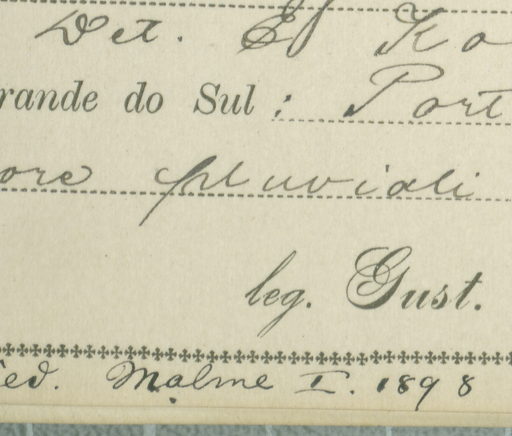 Det. E Ko
rande do Sul: Port
ore pluviali
leg. Gust.
ed. Malme I. 1898